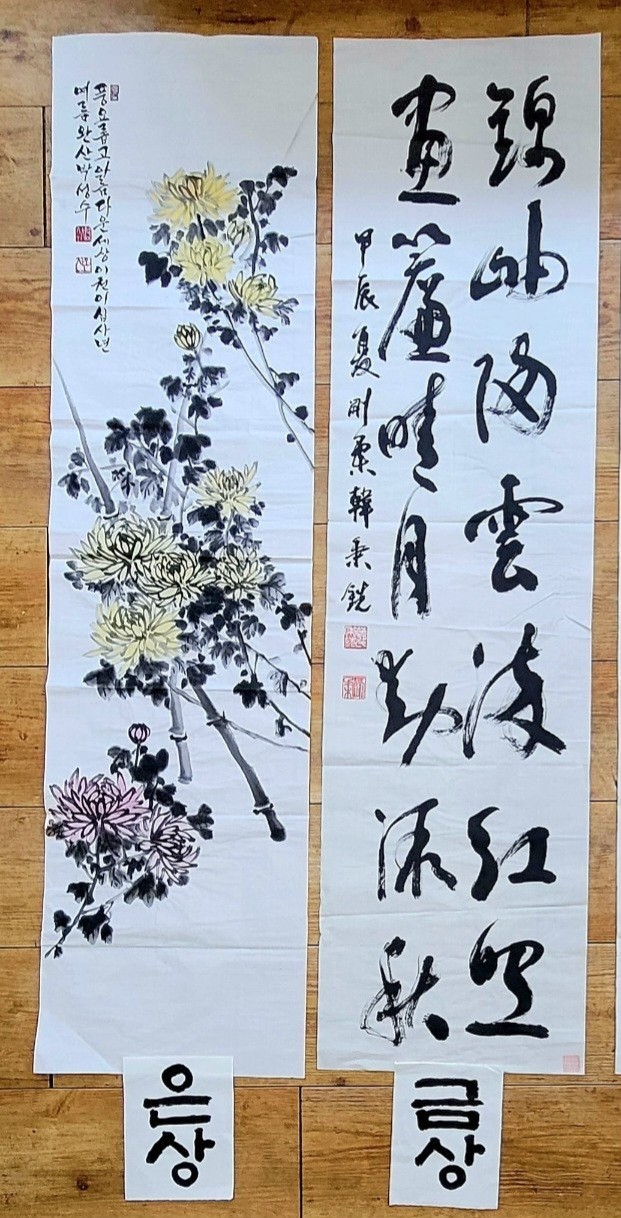 풍요롭고 아름다운 세상 이천이십사년
여름 완산 박성수
錦岫雲紅照
畫簾晴月動凉秋
甲辰夏 剛栗 韓秉銑
은상
금상